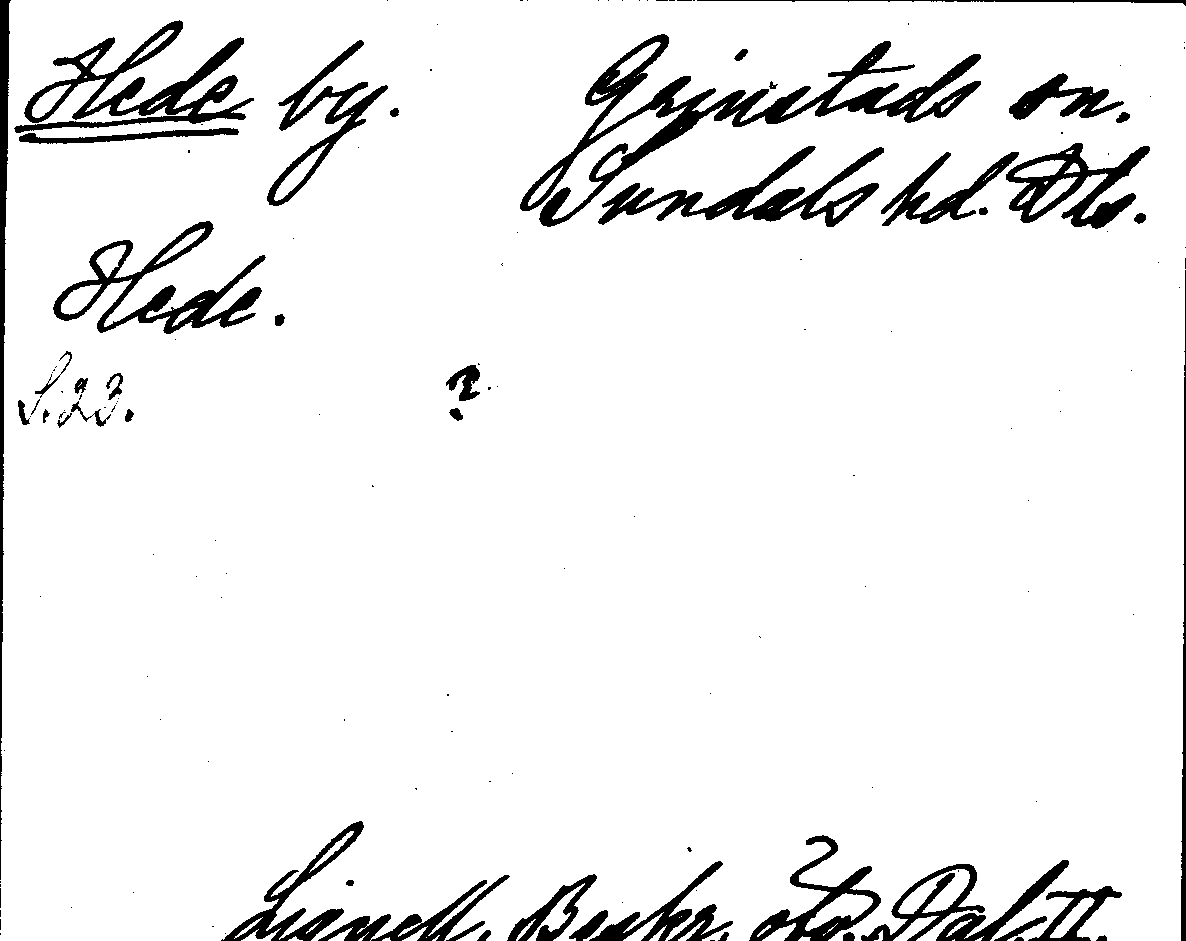 Hede by. Grinstads sn.
Sundals hd. Dls.
Hede.
S. 23. ?
Lignell, Beskr. öfv. Dal. II.